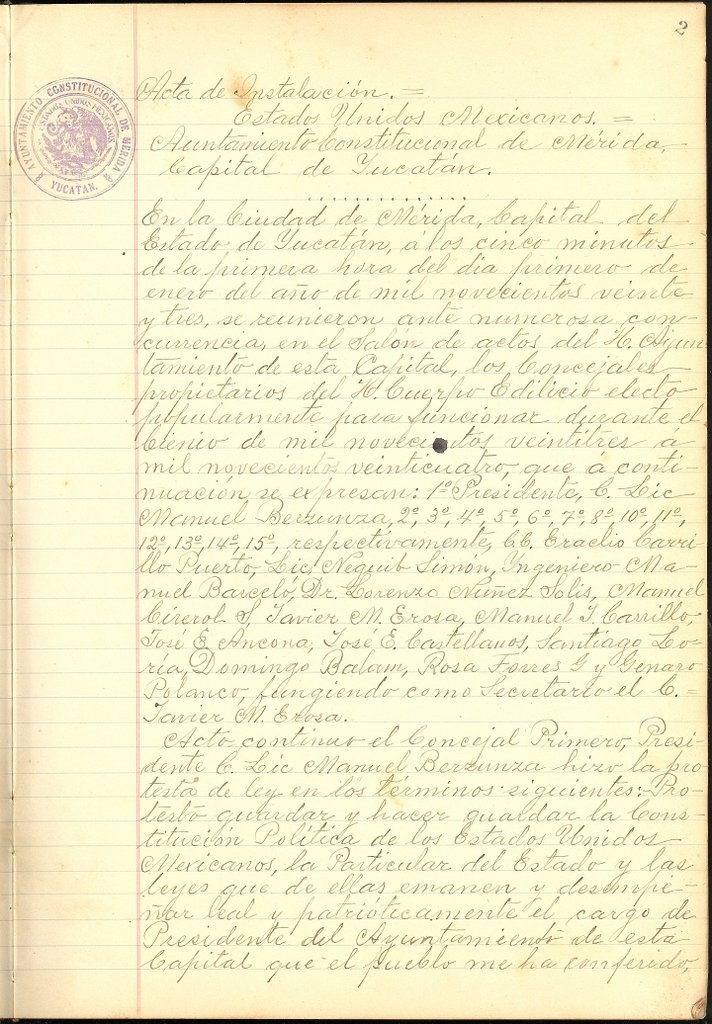 2
AYUNTAMIENTO CONSTITUCIONAL DE MERIDA
ESTADOS UNIDOS MEXICANOS
YUCATAN.
Acta de Instalación. =
Estados Unidos Mexicanos. =
Auntamiento Constitucional de Mérida,-
Capital de Yucatán.
En la Ciudad de Mérida, Capital del
Estado de Yucatán, á los cinco minutos
de la primera hora del dia primero de
enero del año de mil novecientos veinte
y tres, se reunieron ante numerosa con-
currencia, en el Salón de actos del H. Ayun
tamiento de esta Capital, los Concejales
propietarios del H. Cuerpo Edilicio electo
popularmente para funcionar durante el
bienio de mil novecientos veintitres á
mil novecientos veinticuatro, que á conti-
nuación se expresan: 1º Presidente, C. Lic
Manuel Berzunza, 2º, 3º, 4º, 5º, 6º, 7º, 8º, 10º, 11º,
12º, 13º, 14º, 15º, respectivamente, CC. Eraclio Carri-
llo Puerto, Lic. Neguib Simón, Ingeniero Ma-
nuel Barceló, Dr. Lorenzo Núñez Solis, Manuel
Cirerol S, Javier M. Erosa, Manuel J. Carrillo,
José E. Ancona, José E. Castellanos, Santiago Lo-
ría, Domingo Balam, Rosa Torres G y Genaro
Polanco, fungiendo como Secretario el C. =
Javier M. Erosa.
Acto continuo el Concejal Primero, Presi-
dente C. Lic Manuel Berzunza hizo la pro-
testa de ley en los términos siguientes:- Pro-
testo guardar y hacer guardar la Cons-
titución Política de los Estados Unidos
Mexicanos, la Particular del Estado y las
leyes que de ellas emanen y desempe-
ñar leal y patrióticamente el cargo de
Presidente del Ayuntamiento de esta
Capital que el pueblo me ha conferido,